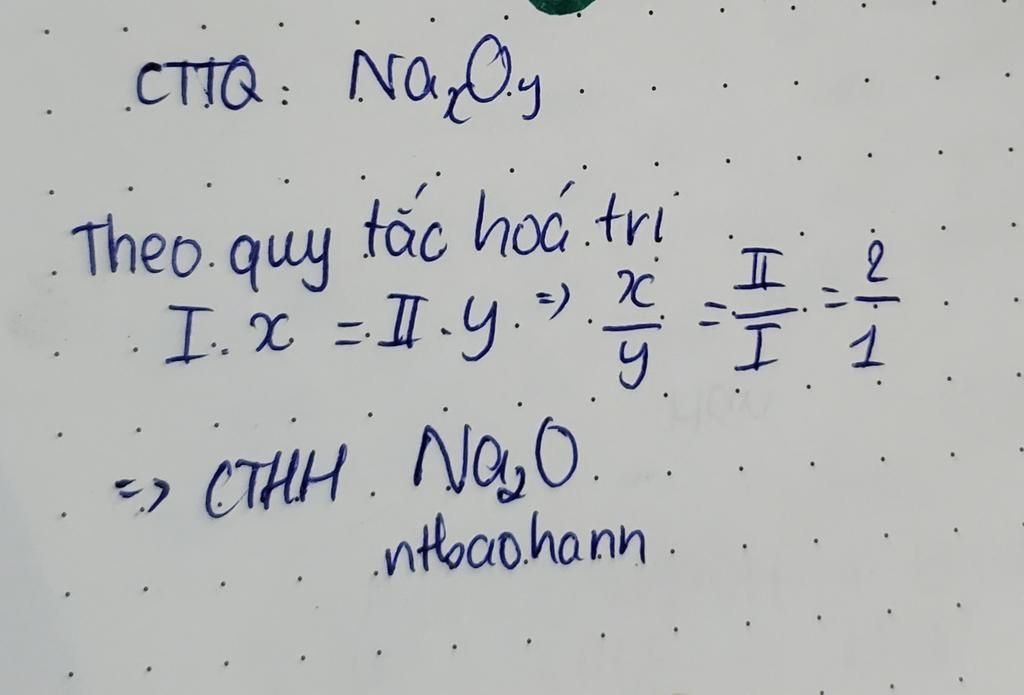 CTTQ: NaxOy
Theo quy tắc hoá trị
I. x = II. y => x/y = II/I = 2/1
=> CTHH Na₂O
ntbaohann